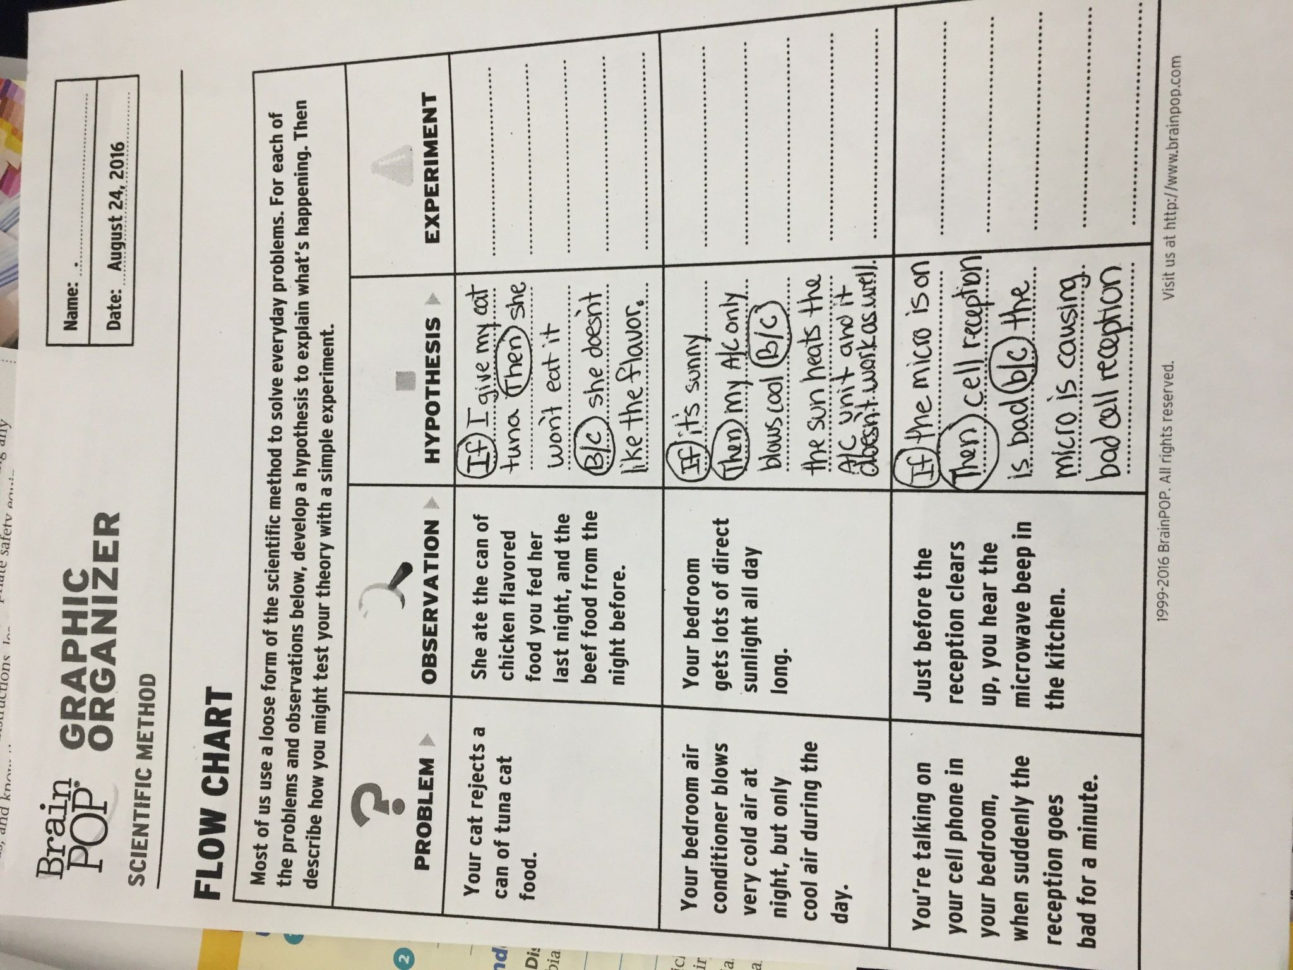 Brain
POP
GRAPHIC
ORGANIZER
SCIENTIFIC METHOD
Name: .
Date: August 24, 2016
FLOW CHART
Most of us use a loose form of the scientific method to solve everyday problems. For each of
the problems and observations below, develop a hypothesis to explain what's happening. Then
describe how you might test your theory with a simple experiment.
PROBLEM
OBSERVATION
HYPOTHESIS
EXPERIMENT
Your cat rejects a
can of tuna cat
food.
She ate the can of
chicken flavored
food you fed her
last night, and the
beef food from the
night before.
If I give my cat
tuna Then she
won't eat it
B/c she doesn't
like the flavor.
Your bedroom air
conditioner blows
very cold air at
night, but only
cool air during the
day.
Your bedroom
gets lots of direct
sunlight all day
long.
If it's sunny
Then my A/C only
blows cool B/C
the sun heats the
A/C unit and it
doesn't work as well.
You're talking on
your cell phone in
your bedroom,
when suddenly the
reception goes
bad for a minute.
Just before the
reception clears
up, you hear the
microwave beep in
the kitchen.
If the micro is on
Then cell reception
is bad b/c the
micro is causing
bad cell reception
1999-2016 BrainPOP. All rights reserved. Visit us at http://www.brainpop.com
2